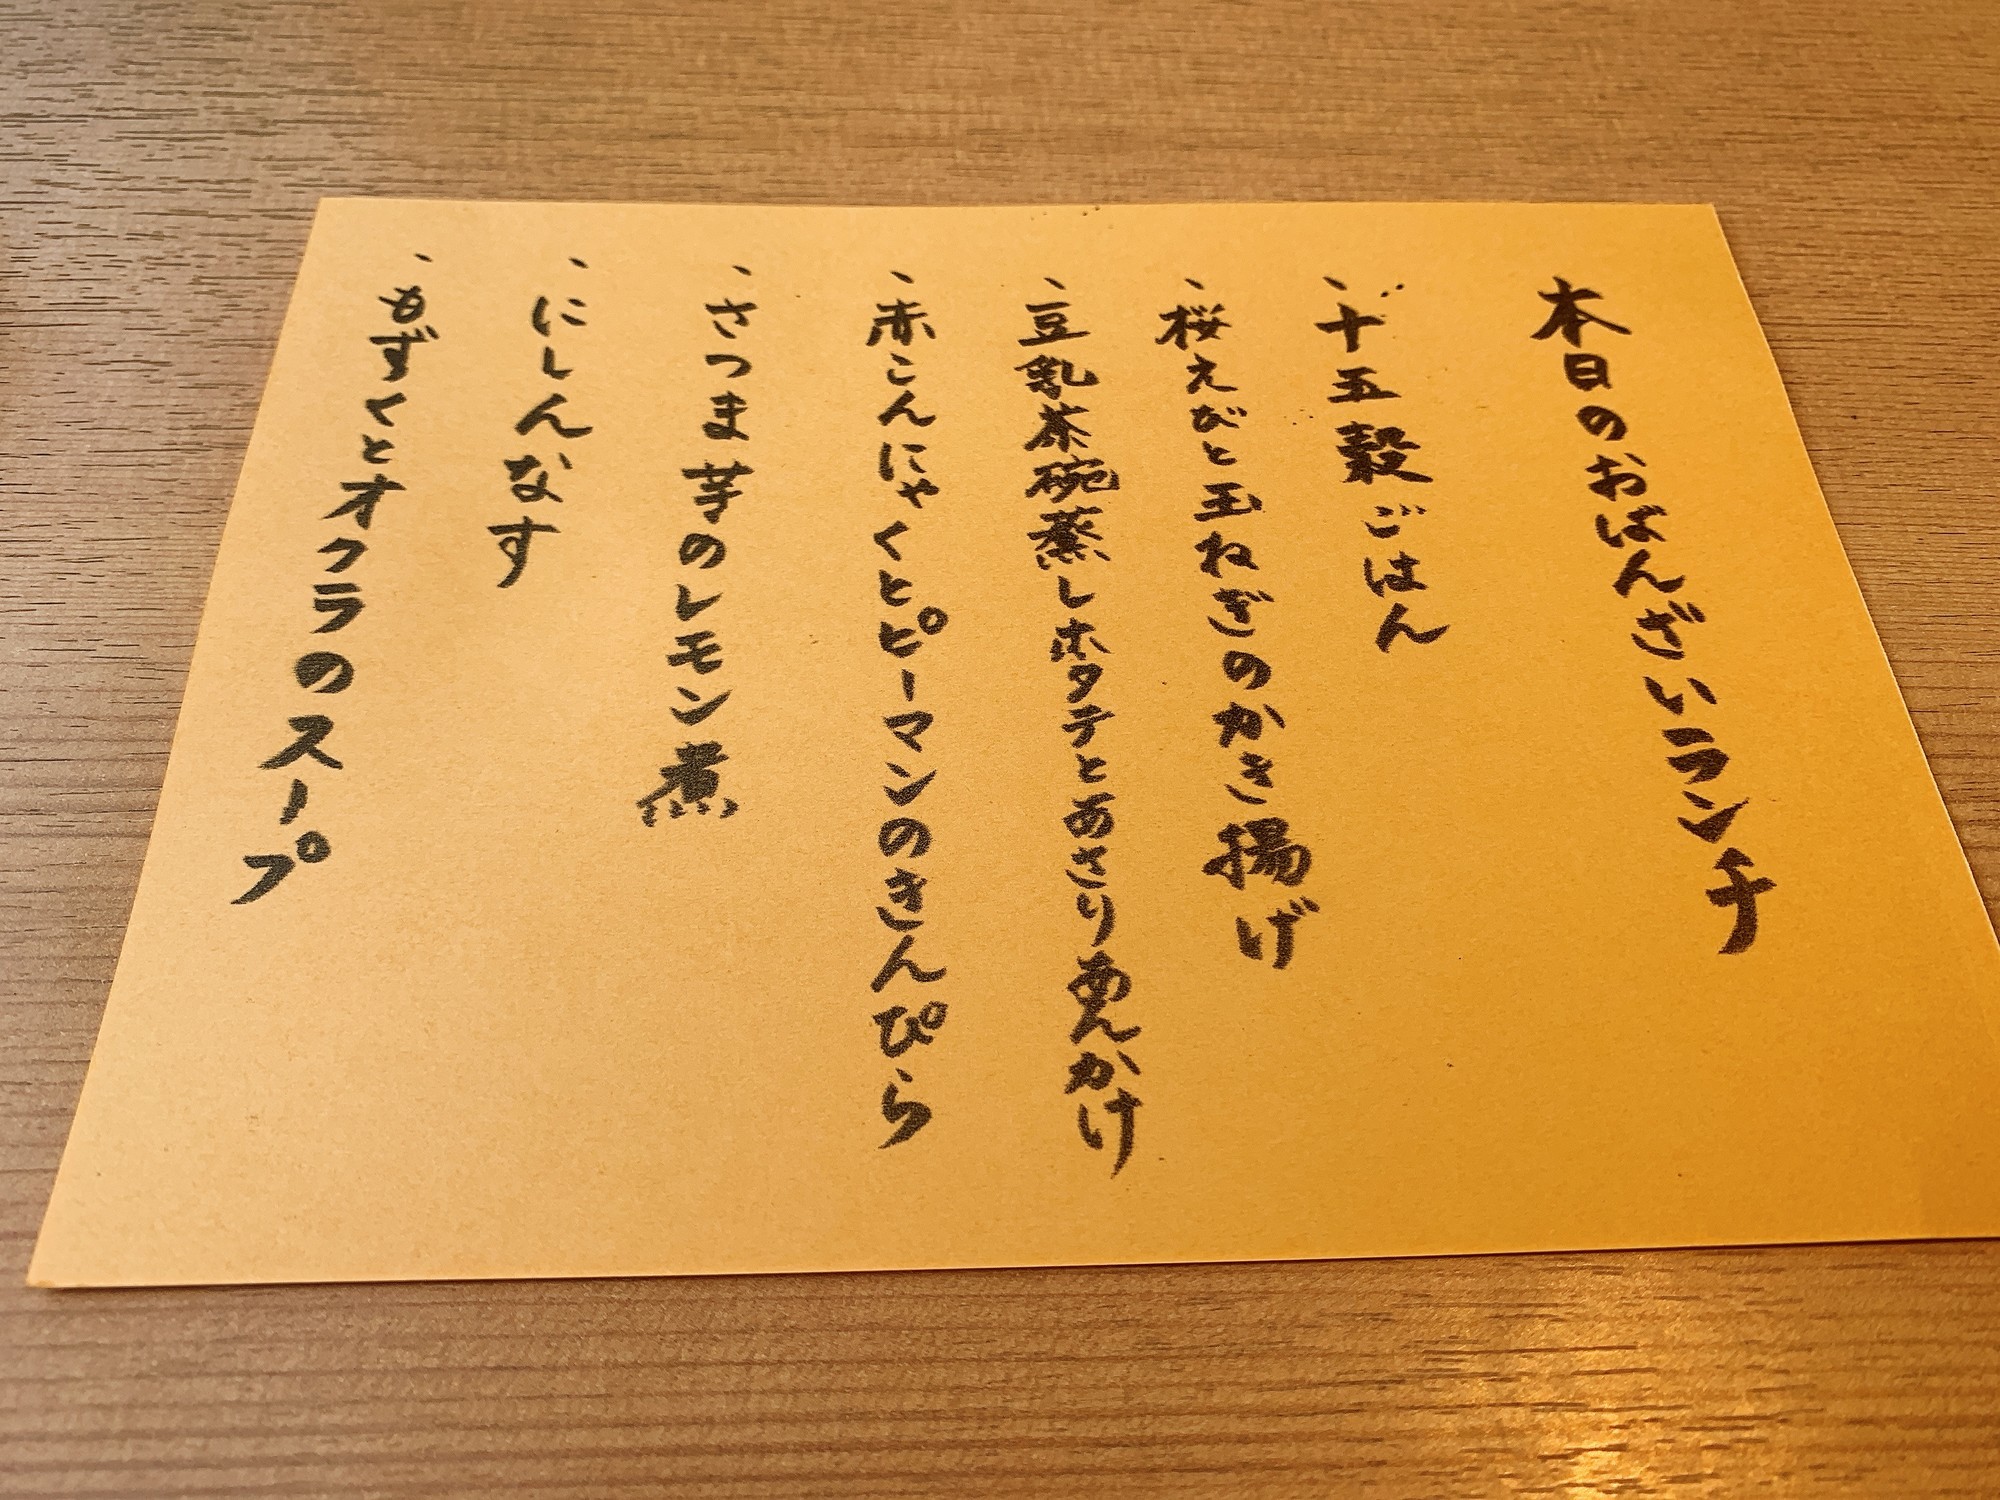 本日のおばんざいランチ
・十五穀ごはん
・桜えびと玉ねぎのかき揚げ
・豆乳茶碗蒸しホタテとあさりあんかけ
・赤こんにゃくとピーマンのきんぴら
・さつま芋のレモン煮
・にしんなす
・もずくとオクラのスープ